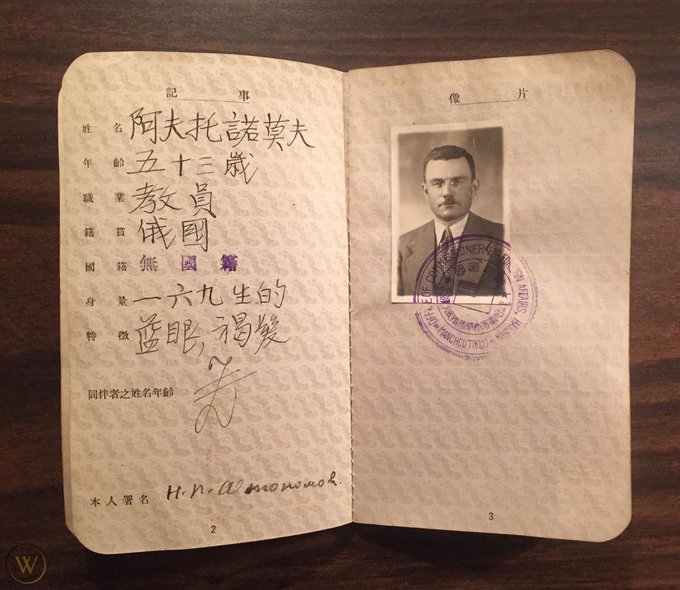 記事
姓名 阿夫托諾莫夫
年齡 五十三歲
職業 教員
籍貫 俄國
國籍 無國籍
身量 一六九生的
特徵 蓝眼,褐髮
同伴者之姓名年齡
本人署名 Н.П. Автономов.
2
像片
OFFICE OF COMMISSIONER FOREIGN AFFAIRS, HARBIN
MANCHOUTIKUO
3
W